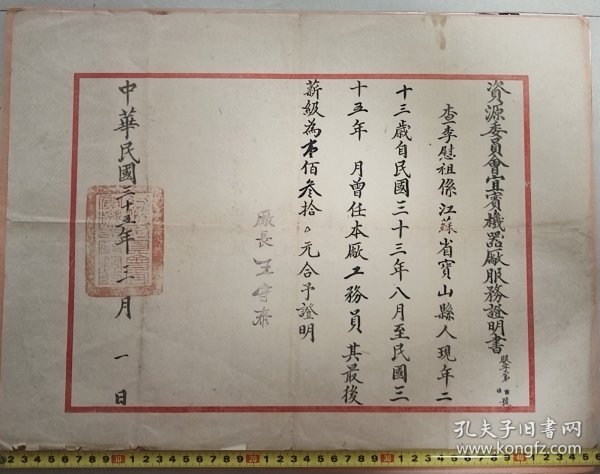 資源委員會宜賓機器廠服務證明書
服字第 號
查李慰祖係江蘇省寶山縣人現年二
十三歲自民國三十三年八月至民國三
十五年 月曾任本廠工務員其最後
薪級為壹佰叁拾 元合予證明
廠長 王守泰
中華民國三十五年三月一日
孔夫子旧书网
www.kongfz.com